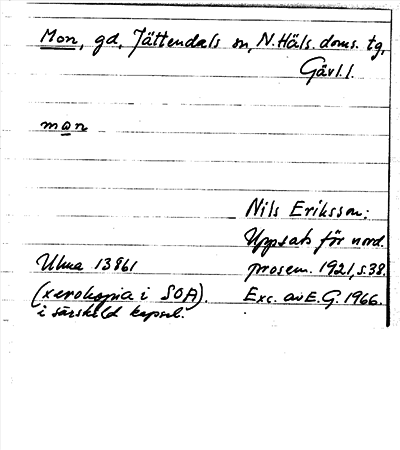 Mon, gd, Jättendals sn, N. Häls. doms. tg,
Gävl. l.
man
Nils Eriksson:
Uppsats för nord.
prosem. 1921, s. 38.
Ulma 13861
(xerokopia i SOA).
i särskild kapsel.
Exc. av E. G. 1966.